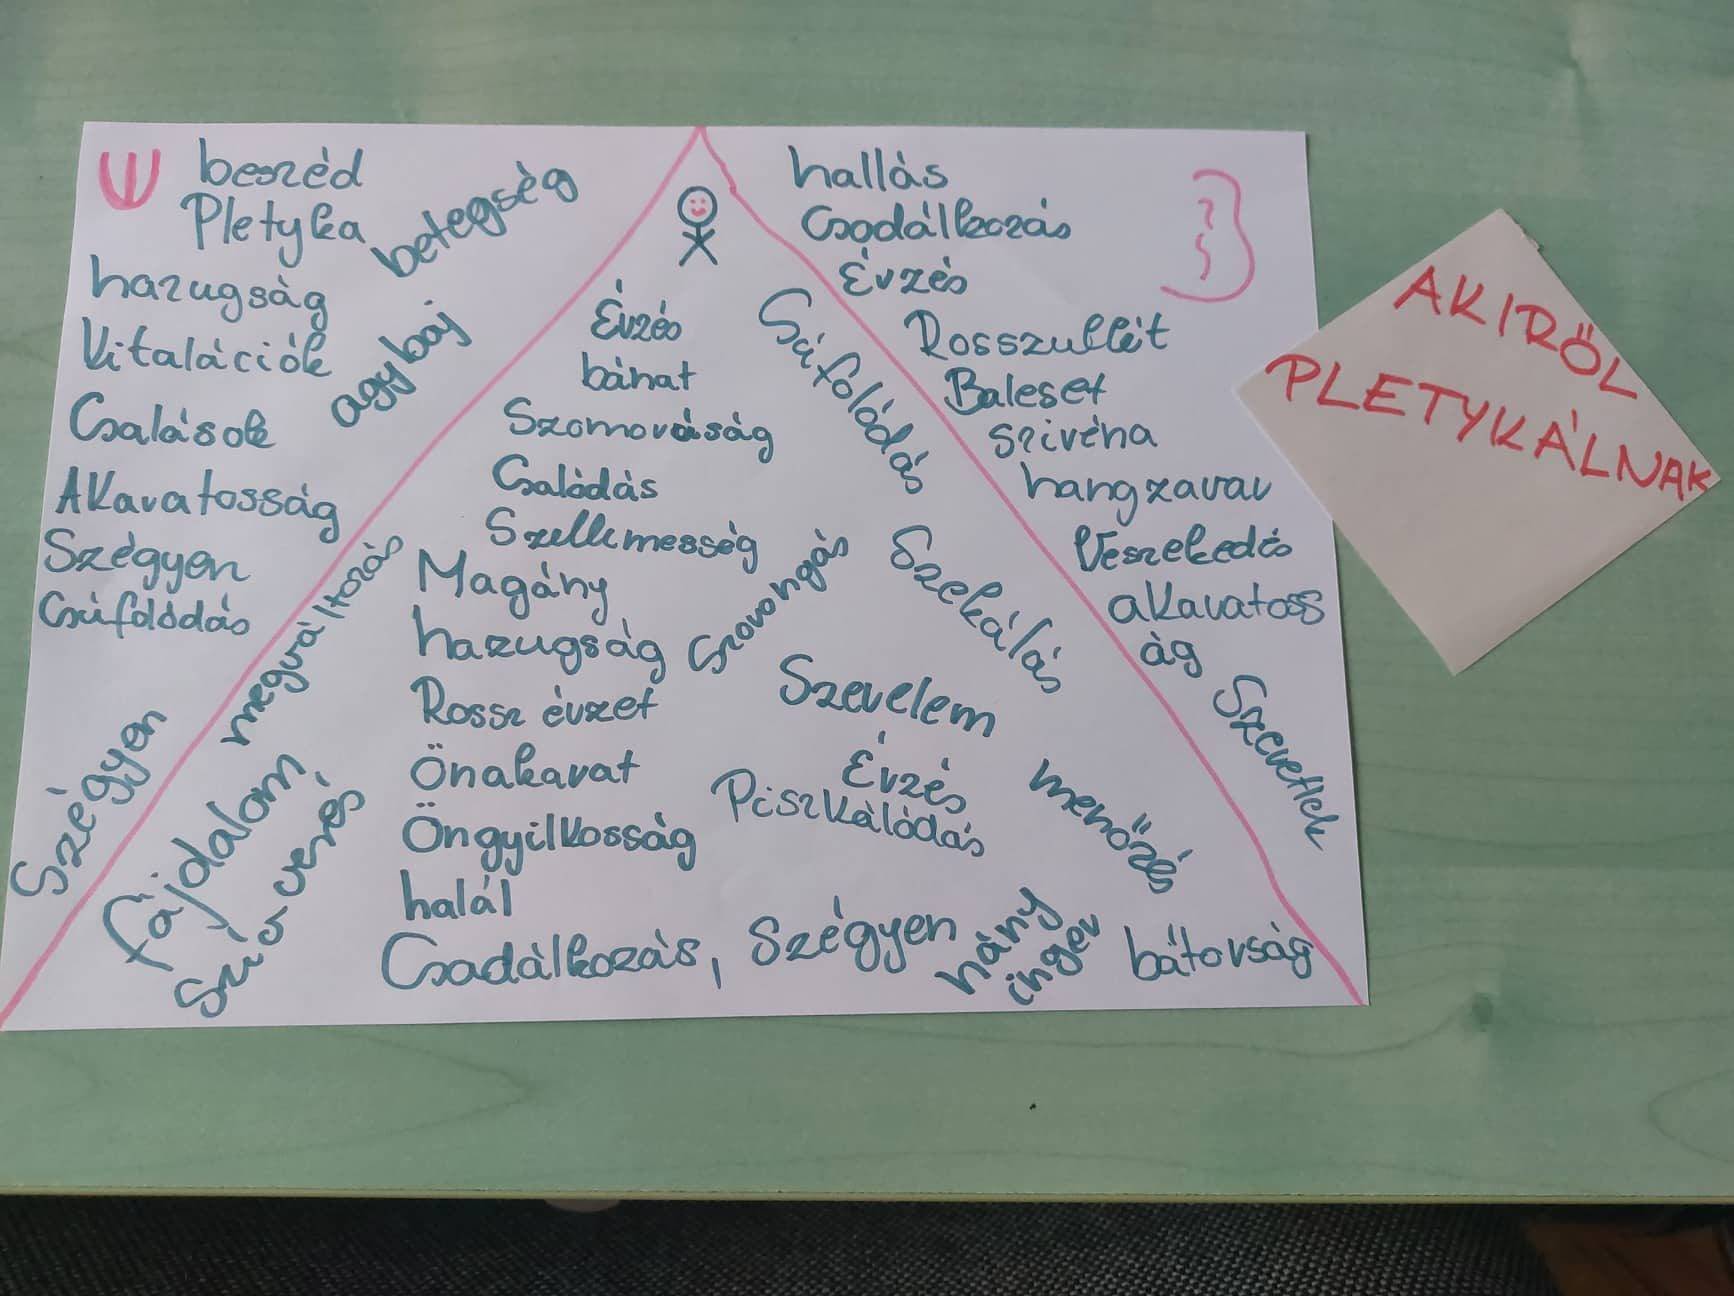 beszéd
Pletyka
betegség
hazugság
Kitalációk
agybaj
Csalások
AKaratosság
Szégyen
Csúfolódás
megváltozás
Szégyen
fájdalom,
Szív verés
Érzés
bánat
Szomorúság
Csalódás
Szellemesség
Magány
hazugság
Rossz érzet
Önakarat
Öngyilkosság
halál
Csodálkozás, Szégyen
Csúfolódás
Szorongás
Szekálás
Szerelem
Érzés
Piszkálódás
menőzés
hány
inger
bátorság
hallás
Csodálkozás
Érzés
Rosszullét
Baleset
hangzavar
Veszekedés
akaratoss
ág
Szeretlek
AKIRŐL
PLETYKÁLNAK